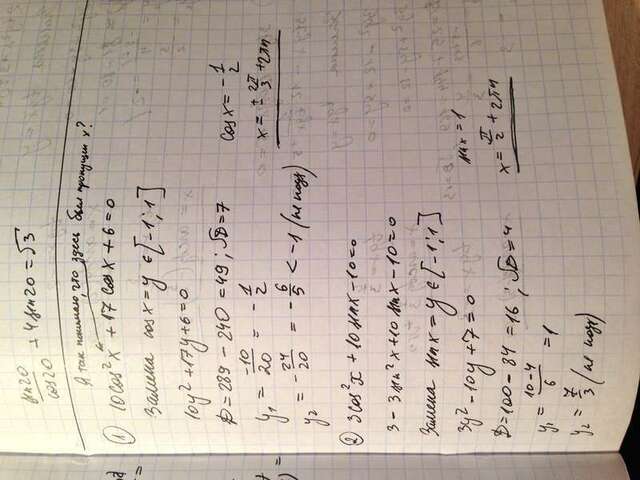 sin20/cos20 + 4sin20 = √3
Я так понимаю, что здесь был пропущен x?
① 10cos²x + 17cosx + 6 = 0
Замена cosx = y ∈ [-1; 1]
10y² + 17y + 6 = 0
D = 289 - 240 = 49; √D = 7
y₁ = -10/20 = -1/2
y₂ = -24/20 = -6/5 < -1 (не подх)
cosx = -1/2
x = ± 2π/3 + 2πn
② 3cos²x + 10sinx - 10 = 0
3 - 3sin²x + 10sinx - 10 = 0
Замена sinx = y ∈ [-1; 1]
3y² - 10y + 7 = 0
D = 100 - 84 = 16, √D = 4
y₁ = 10-4/6 = 1
y₂ = 7/3 (не подх)
sinx = 1
x = π/2 + 2πn